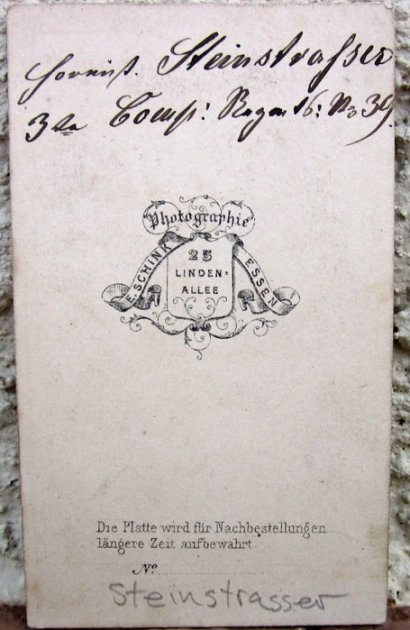 Steinstrasser
3te Comp: Regmt: No 39.
Photographie
E. SCHINK
25
LINDEN=
ALLEE
ESSEN
Die Platte wird für Nachbestellungen
längere Zeit aufbewahrt.
No.
Steinstrasser